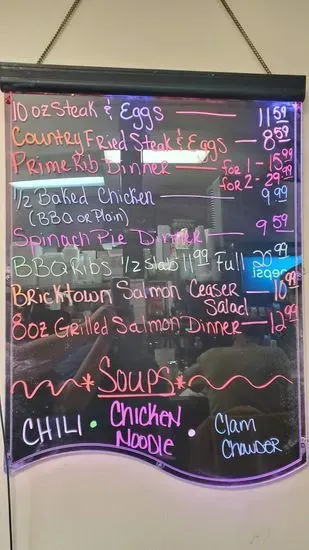 10 oz Steak & Eggs — 11 59
Country Fried Steak & Eggs — 8 59
Prime Rib Dinner — for 1 - 15 99
for 2 - 29 99
1/2 Baked Chicken — 9 99
(BBQ or Plain)
Spinach Pie Dinner — 9 59
BBQ Ribs 1/2 Slab 11 99 Full 20 99
Bricktown Salmon Ceaser Salad — 10 99
8oz Grilled Salmon Dinner — 12 99
Soups
CHILI • Chicken Noodle • Clam Chowder